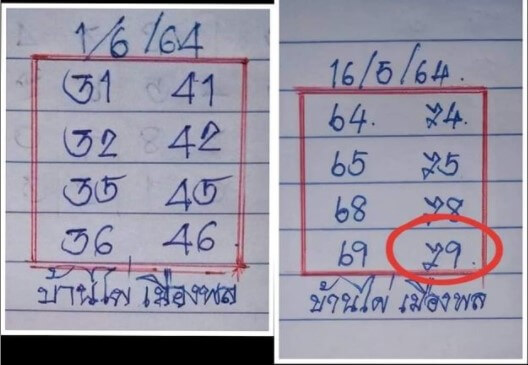 1/6/64
31 41
32 42
35 45
36 46
บ้านไผ่ เมืองพล
16/5/64.
64. 74.
65 75
68 78
69 79.
บ้านไผ่ เมืองพล